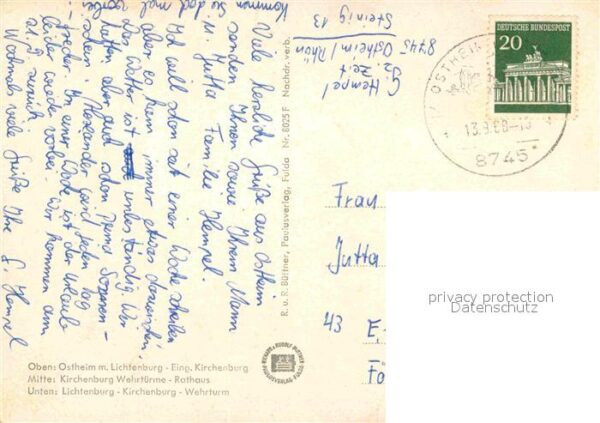 Viele herzliche Grüße aus Ostheim
senden Ihnen sowie Ihrem Mann
u. Jutta Familie Hempel.
Ich will schon seit einer Woche schreiben
aber es kam immer etwas dazwischen.
Das Wetter ist unbeständig. Wir
hatten aber auch schon prima Sonnen-
schein. Alexander wird jeden Tag
frecher. In einer Woche ist der Urlaub
leider wieder vorbei. Wir kommen am
zurück
Nochmals viele Grüße Ihre G. Hempel
Kommen Sie doch mal vorbei.
G. Hempel
z. Zeit
8745 Ostheim / Rhön
Steinig 13
R. u. R. Büttner, Paulusverlag, Fulda Nr. 8025 F Nachdr. verb.
DEUTSCHE BUNDESPOST
20
OSTHEIM
13.9.68-15
8745
Frau
Jutta
43 E
privacy protection
Datenschutz
Oben: Ostheim m. Lichtenburg - Eing. Kirchenburg
Mitte: Kirchenburg Wehrtürme - Rathaus
Unten: Lichtenburg - Kirchenburg - Wehrturm